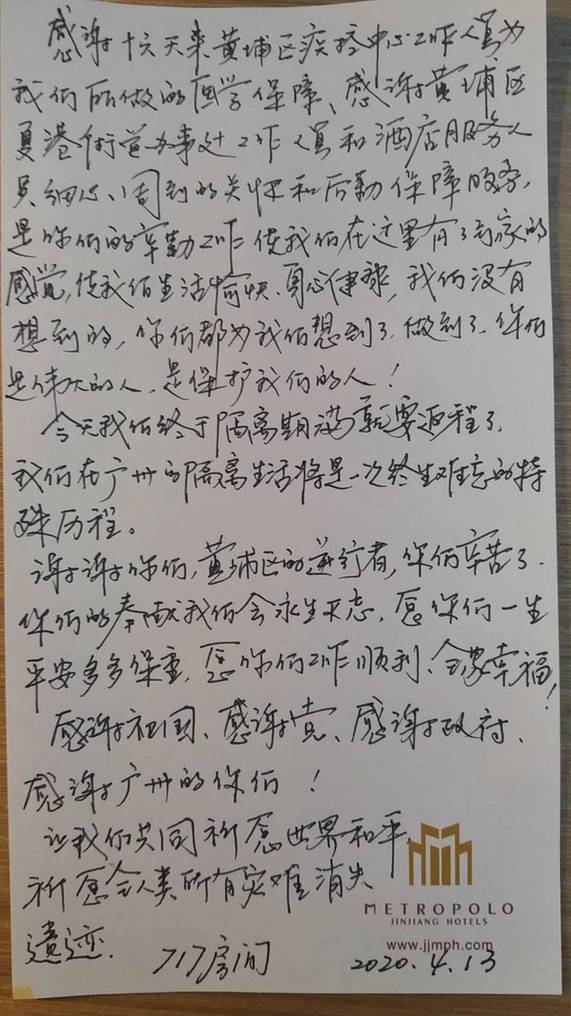 感谢十六天来黄埔区疾控中心工作人员为
我们所做的医学保障、感谢黄埔区
夏港街道办事处工作人员和酒店服务人
员细心、周到的关怀和后勤保障服务,
是你们的辛勤工作使我们在这里有了家的
感觉,使我们生活愉快、身心健康,我们没有
想到的,你们都为我们想到了.做到了.你们
是伟大的人.是保护我们的人!
今天我们终于隔离期满就要返程了,
我们在广州的隔离生活将是一次终生难忘的特
殊历程。
谢谢你们,黄埔区的逆行者,你们辛苦了.
你们的奉献我们会永生不忘,愿你们一生
平安多多保重,愿你们工作顺利、全家幸福!
感谢祖国、感谢党、感谢政府、
感谢广州的你们!
让我们共同祈愿世界和平,
祈愿全人类所有灾难消失
遗迹.
717房间
2020.4.13
METROPOLO
JINJIANG HOTELS
www.jjmph.com